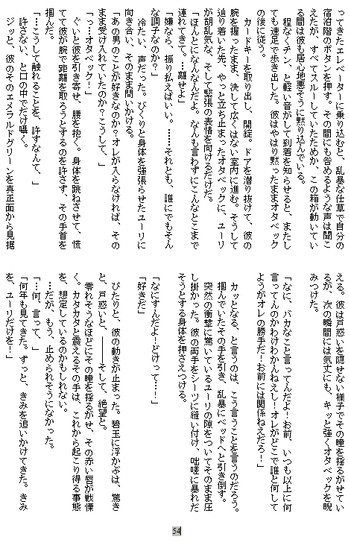 ってきたエレベーターに乗り込むと、乱暴な仕草で自分の
宿泊階のボタンを押す。その間にも咎めるような声は聞こ
えたが、すべてスルーしていたためか、この箱が動いてい
る間は彼も居心地悪そうに黙り込んでいる。
程なくチン、と軽い音がして到着を知らせると、またし
ても速足で歩き出した。彼はやはり黙ったままオタベック
の後に従う。
カードキーを取り出し、開錠。ドアを潜り抜けて、彼の
腕を掴ったまま、決して広くはない室内に進む。そうして
辿り着いた先、やっと立ち止まったオタベックに、ユーリ
が胡乱な、そして緊張の表情を向けるだけだ。
「ほんとになんなんだよ。なんも言わずにこんなとこまで
連れてきて。離せよ」
「嫌なら振り払えばいい。……それとも、誰にでもそん
な調子なのか？」
冷たい、声だった。びくりと身体を強張らせたユーリに
向き合い、そのまま問いかける。
「あの男のことが好きなのか？オレが入らなければ、その
まま受け入れていたのか？こうして。」
「っ…オタベック！」
ぐいと彼を引き寄せ、腰を抱く。身体を跳ねさせて、慌
てて彼が腕で距離を取ろうとするのを許さず、その手首を
掴んだ。
「…こうして触れることを、許すなんて、」
許さない、と口の中でだけ囁く。
ジッと、彼のそのエメラルドグリーンを真正面から見据
える。彼は戸惑いを隠せない様子でその瞳を揺るがせてい
るが、次の瞬間には気丈にも、キッと強くオタベックを睨
みつけた。
「なに、バカなこと言ってんだよ！お前、いつも以上に何
言ってんのかわけわかんねえし！オレがどこで誰と何して
ようがオレの勝手だ！お前には関係ねえだろ！」
カッとなる、と言うのは、こう言うことを言うのだろう。
掴んでいたその手を引き、乱暴にベッドへと引き倒す。
突然の衝撃に驚いているユーリの隙をついてそのまま圧
し掛かった。彼の両手をシーツに縫い付け、咄嗟に暴れだ
そうとする身体を押さえつける。
「なにすんだよ！どけって！」
「好きだ」
ぴたりと、彼の動きが止まった。碧玉に浮かぶは、驚き
と、戸惑いと、――そして、絶望と。
零れそうなほどにその瞳を揺るがせ、その赤い唇が戦慄
く。カタカタと震えるその手は、これから起こり得る事態
を、想定しているのかもしれない。
…だが、もう、止められそうになかった。
「…何、言って、」
「何年も見てきた。ずっと、きみを追いかけてきた。きみ
を、ユーリだけを！」
54